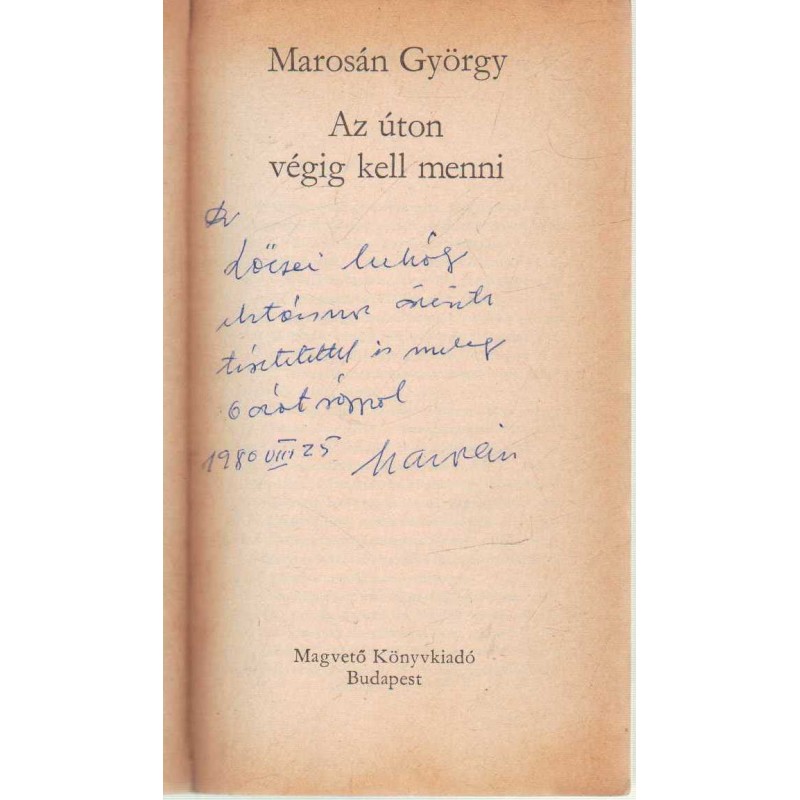 Marosán György
Az úton
végig kell menni
Dr
Lőcsei
elvtársnak
tisztelettel és meleg
barátsággal
1980 VIII 25. Marosán
Magvető Könyvkiadó
Budapest